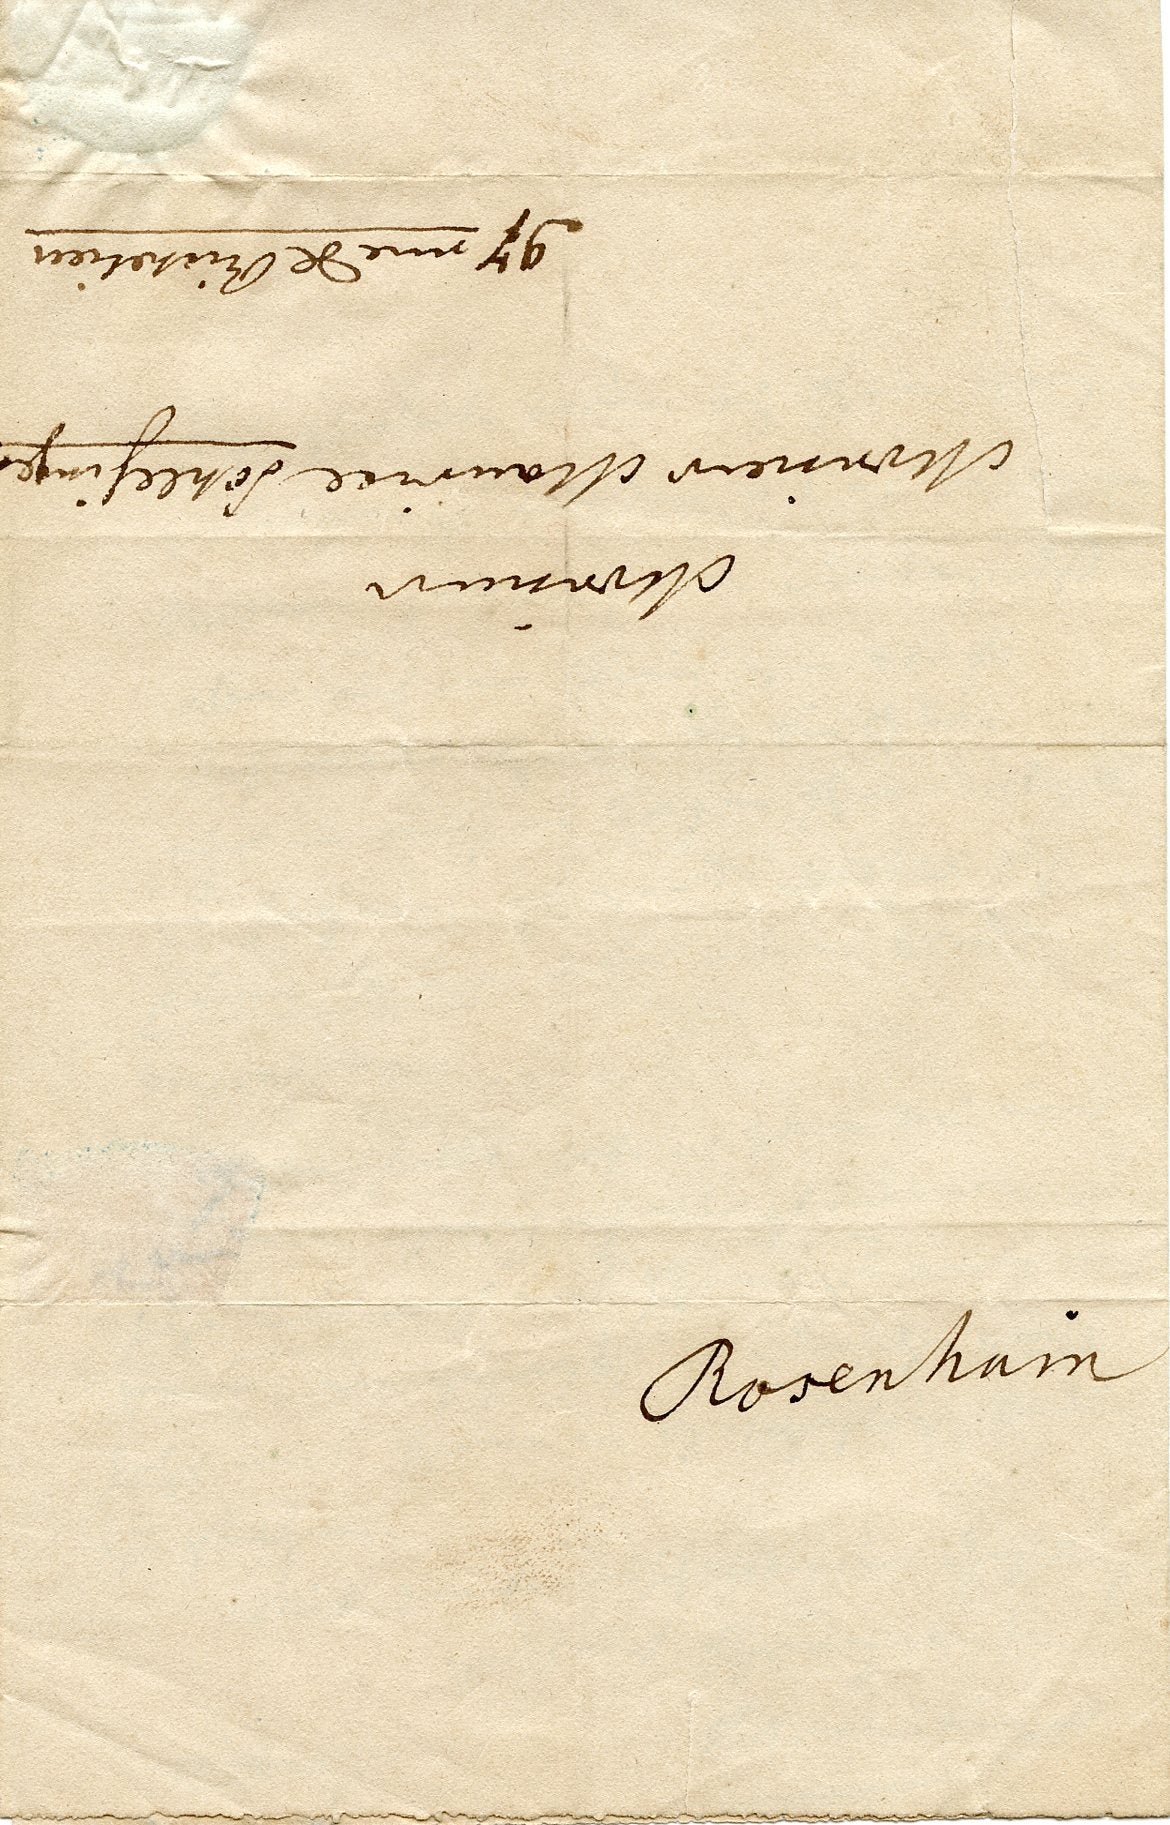 Monsieur
Monsieur Maurice Schlesinger
97 rue de Richelieu
Rosenhain